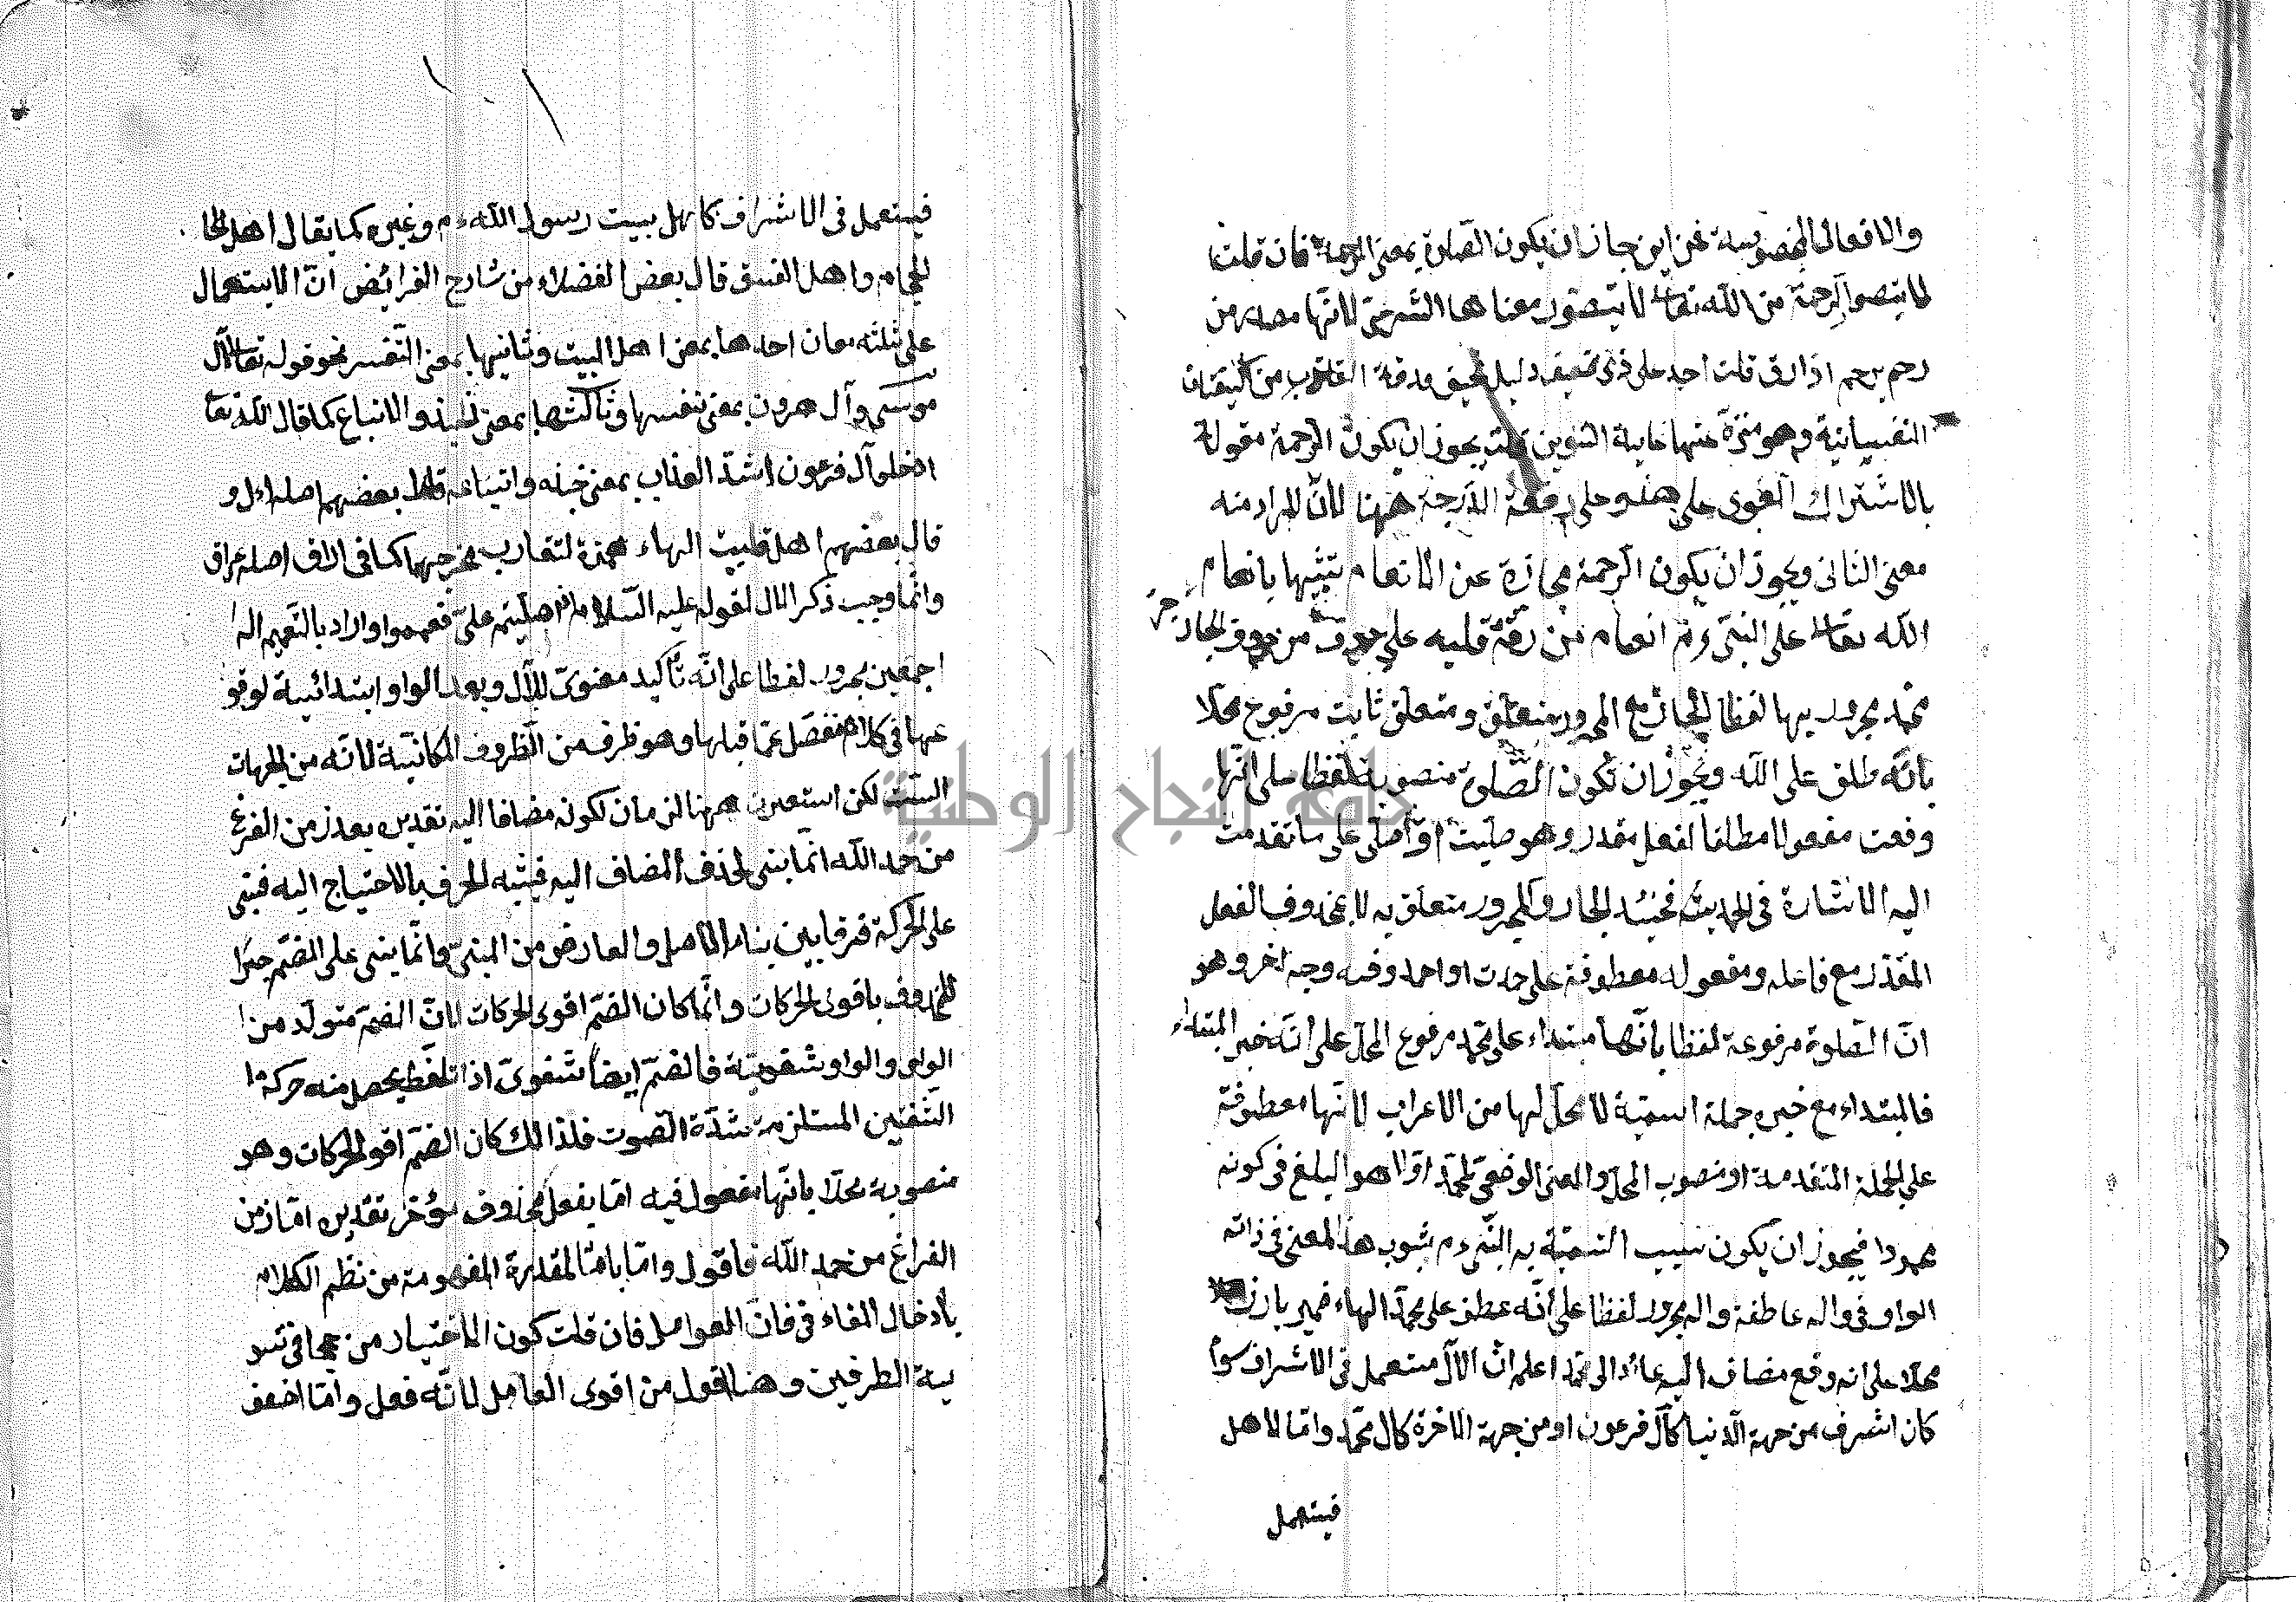 والافعال المخصوصة فمن اين جاز ان يكون الصلوة بمعنى الرحمة فان قلت
لا يتصور الرحمة من الله تعالى لا يتصور معناها الشرعى لانها مصدر من
رحم يرحم اذا رق قلت احد على ذى ضعيف دليل ورقة القلوب من الكيفيات
النفسانية وهو منزه عنها يجوز ان يكون الرحمة مقولة
بالاشتراك اللغوى على هذه وعلى رفعة الدرجة ههنا لان المراد منه
معنى الثانى ويجوز ان يكون الرحمة مجازة عن الانعام بانعام
الله تعالى على النبى وم انعام من رقة قلبه على حرف من حروف الجار جر
محمد مجرور بها لفظا الجار مع المجرور متعلق ومتعلق ثابت مرفوع محلا
بانه طلق على الله ويجوز ان تكون الصلوة منصوبة لفظا على انها
وقعت مفعولا مطلقا لفعل مقدر وهو صليت او اصلى على ما تقدمت
اليه الاشارة فى الحديث فحينئذ الجار والمجرور متعلق به لا بمحذوف الفعل
المقدر مع فاعله ومفعوله معطوفة على حمدت او احمد وفيه وجه اخر وهو
ان الصلوة مرفوعة لفظا بانها مبتداء على محمد مرفوع المحل على انه خبر المبتداء
فالمبتداء مع خبره جملة اسمية لا محل لها من الاعراب لانها معطوفة
على الجملة المتقدمة او منصوب المحل والمعنى الوضعى لمحمد اولا هو البليغ فى كونه
محمودا فيجوز ان يكون سبب التسمية به النبى وم ثبوت هذا المعنى فى ذاته
الواو فى واله عاطفة واله مجرور لفظا على انه عطف على محمد الهاء ضمير بارز
محلا على انه وقع مضاف اليه عائد الى محمد اعلم ان الآل مستعمل فى الاشراف سواء
كان اشرف من جهة الدنيا كآل فرعون او من جهة الاخرة كآل محمد واما لاهل
فيستعمل
١٠١
فيستعمل فى الاشراف كاهل بيت رسول الله ءم وغيره كما يقال اهل الحا
الحجام واهل الفسق قال بعض الفضلاء من شارح الفرائض ان الآل يستعمال
على ثلثة معان احدها بمعنى اهل البيت وثانيها بمعنى النفس نحو قوله تعالى آل
موسى وآل هرون بمعنى نفسها وثالثها بمعنى والاتباع كما قال الله تعا
ادخلوا آل فرعون اشد العذاب بمعنى جنده واتباعه قال بعضهم اصله اءل و
قال بعضهم اهل قلبت الهاء همزة لتقارب مخرجهما كما فى الاق اصله هراق
وانما وجب ذكر الال لقوله عليه السلام اذا صليتم على فعمموا واراد بالتعميم اله
اجمعين مجرور لفظا على انه تأكيد معنوى للآل وبعد الواو ابتدائية لوقو
عها فى كلام منفصل عما قبلها وهو ظرف من الظروف المكانية لانه من الجهات
الست لكن استعيرت ههنا لزمان لكونه مضافا اليه تقديره بعد زمن الفرغ
من حمد الله انما بنى لحذف المضاف اليه فيشبه الحرف بالاحتياج اليه فبنى
على الحركة فرقا بين بناء الاصلى والعارض من المبنى وانما بنى على الضم جبرا
للمحذوف باقوى الحركات وانما كان الضم اقوى الحركات لان الضم متولد من ا
الواو والواو شفوية فالضم ايضا شفوى اذا تلفظ يحصل منه حركة ا
الشفتين المستلزمة شدة الصوت فلذالك كان الضم اقوى الحركات وهو
منصوبة محلا بانها مفعول فيه اما بفعل محذوف مؤخر تقديره اما زمن
الفراغ من حمد الله فاقول واما باما المقدرة المفهومة من نظم الكلام
بادخال الفاء فى فان العوامل فان قلت كون الاختيار من جحا فى تسو
ية الطرفين وهنا اقول من اقوى العامل لانه فعل واما اضعف
جامعة النجاح الوطنية